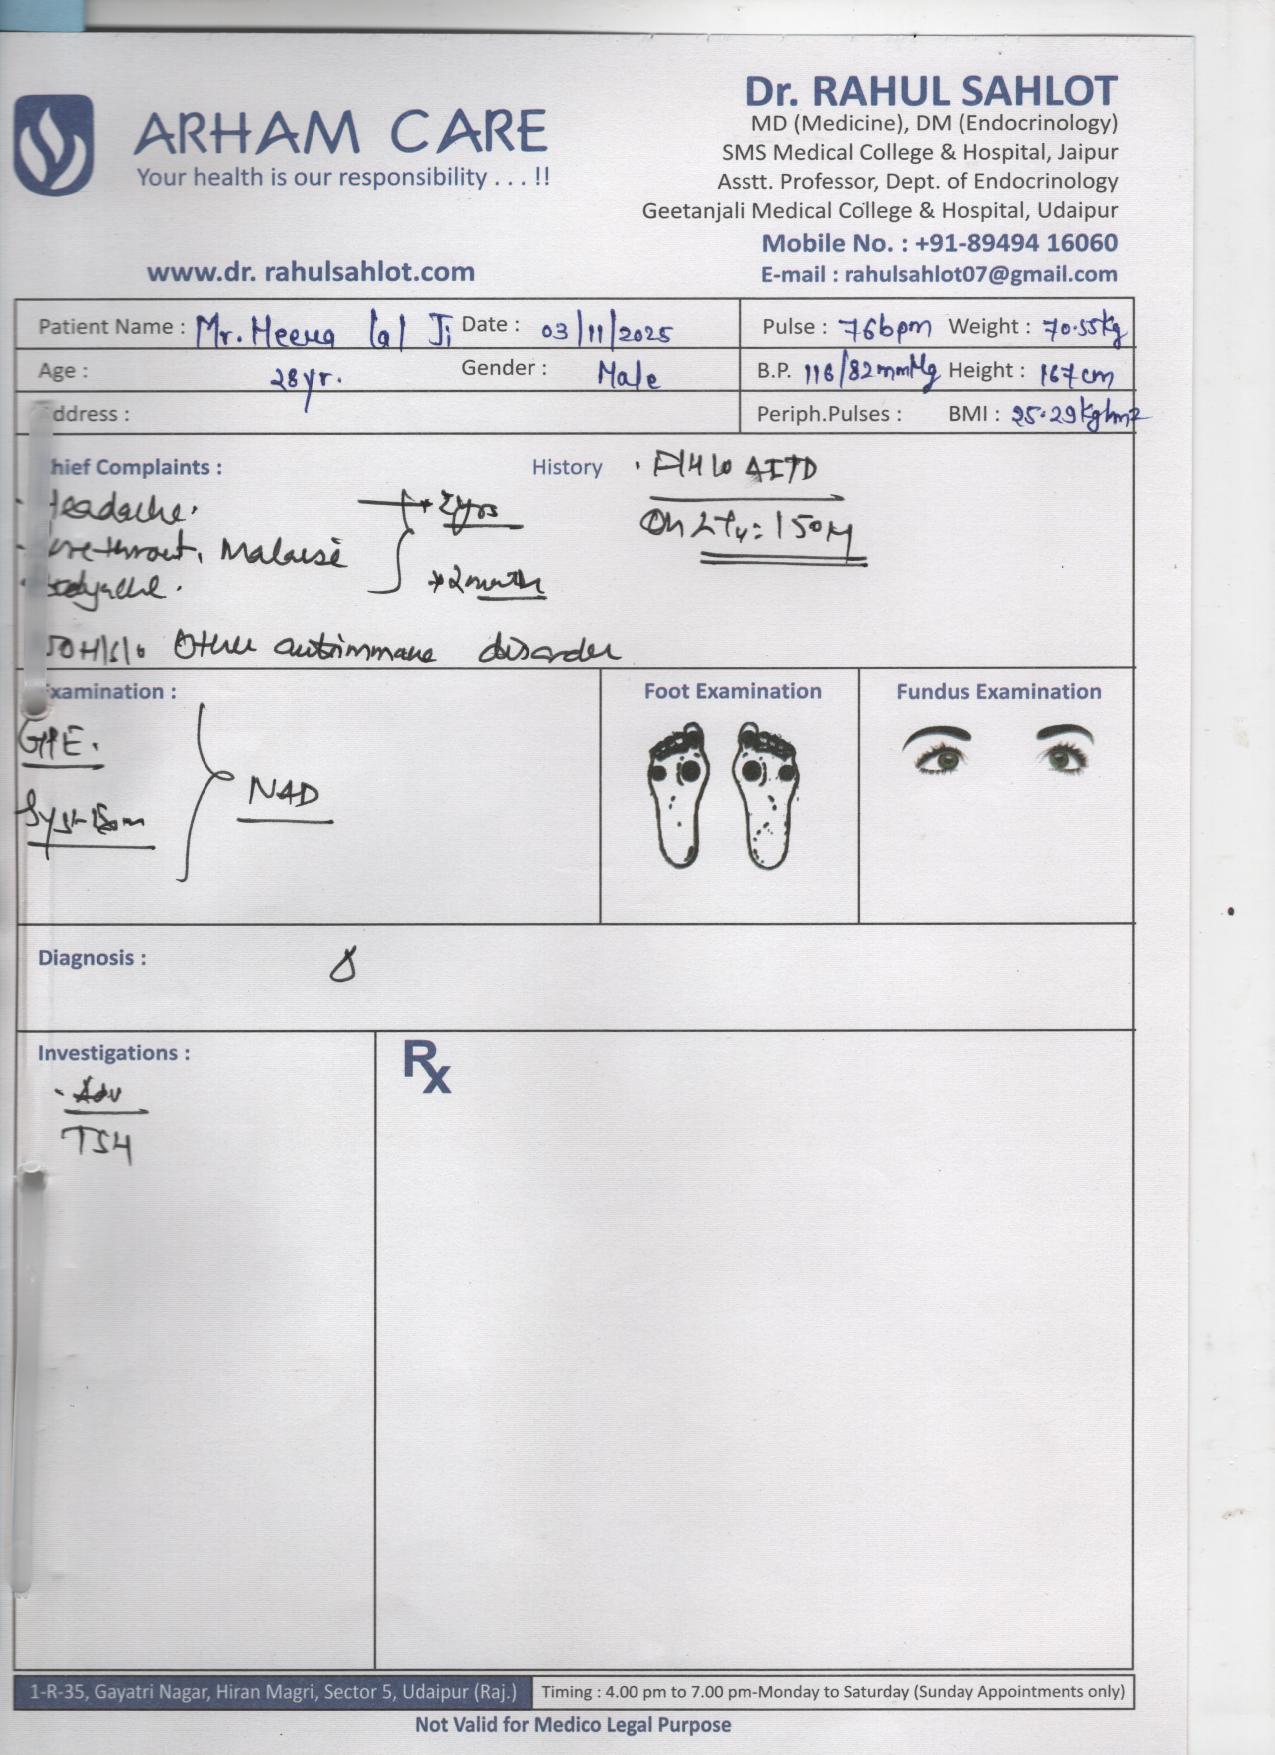 ARHAM CARE
Your health is our responsibility . . . !!
www.dr. rahulsahlot.com
Dr. RAHUL SAHLOT
MD (Medicine), DM (Endocrinology)
SMS Medical College & Hospital, Jaipur
Asstt. Professor, Dept. of Endocrinology
Geetanjali Medical College & Hospital, Udaipur
Mobile No. : +91-89494 16060
E-mail : rahulsahlot07@gmail.com
Patient Name : Mr. Heera lal Ji Date : 03/11/2025 Pulse : 76bpm Weight : 70.55kg
Age : 28yr. Gender : Male B.P. 116/82mmHg Height : 167cm
ddress : Periph.Pulses : BMI : 25.29kg/m2
hief Complaints : History
Headache. 2yrs
throat, Malaise
Bodyache. 2month
AITD
On LT4: 150M
Other autoimmune disorder
xamination : Foot Examination Fundus Examination
GPE.
NAD
Diagnosis :
Investigations : Rx
Adv
TSH
1-R-35, Gayatri Nagar, Hiran Magri, Sector 5, Udaipur (Raj.) Timing : 4.00 pm to 7.00 pm-Monday to Saturday (Sunday Appointments only)
Not Valid for Medico Legal Purpose